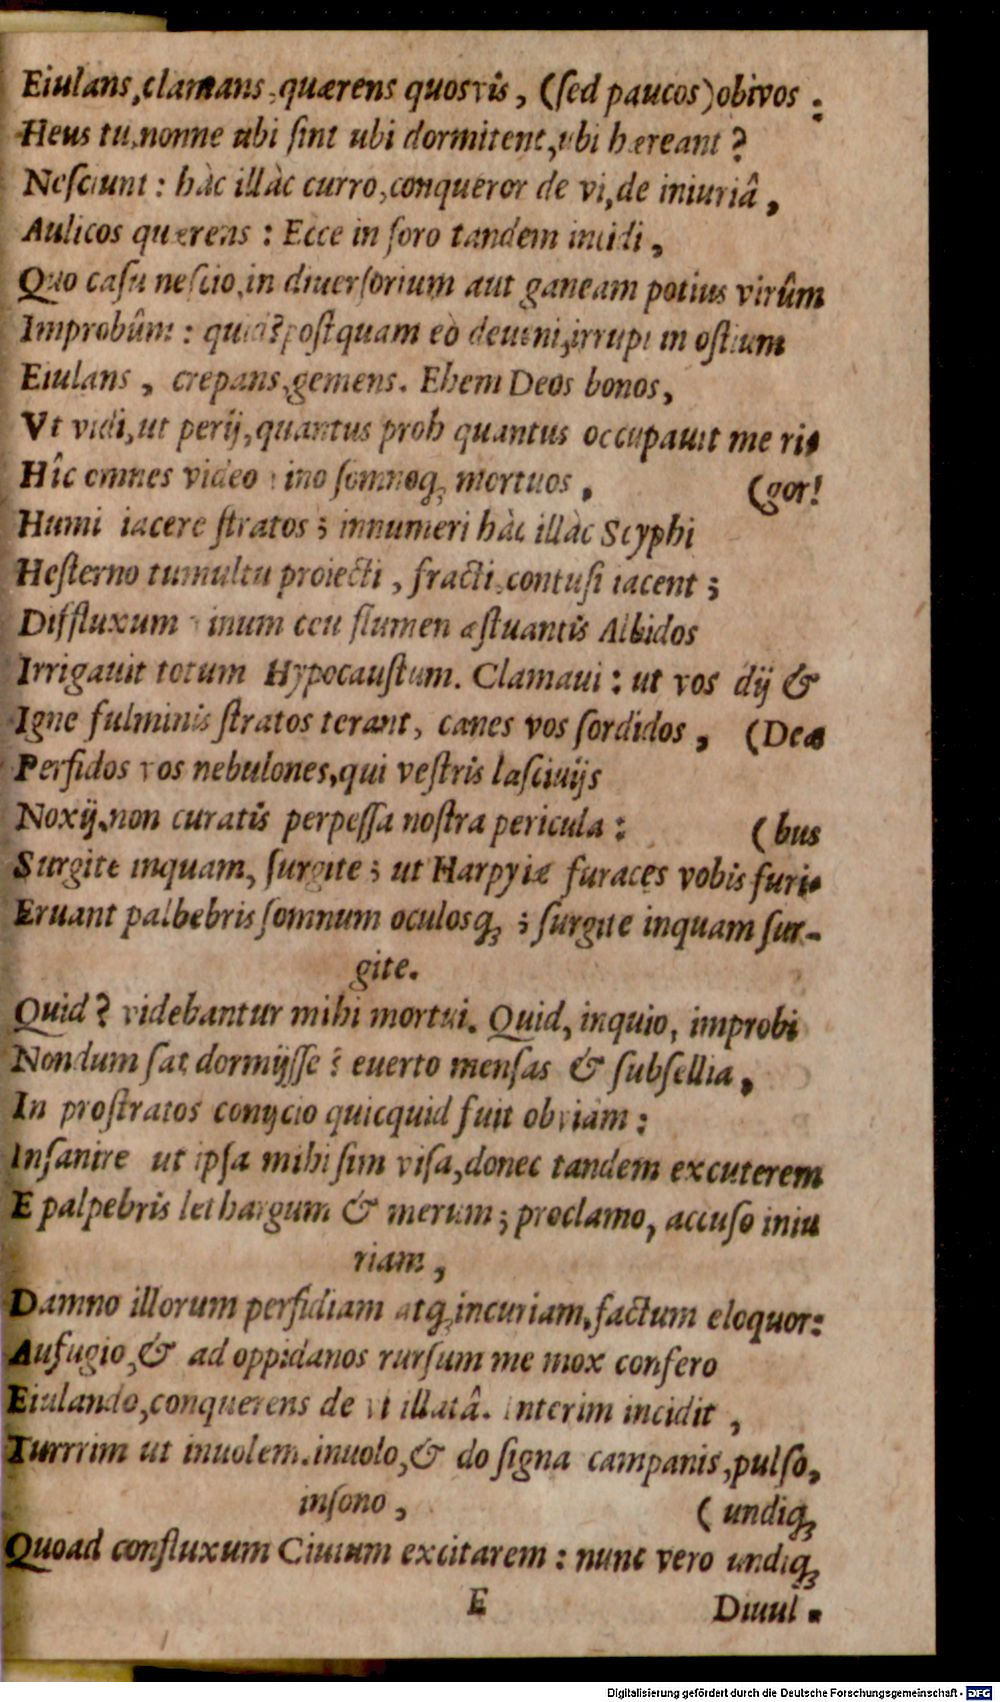 Eiulans, clamans, quærens quosvis, (ſed paucos) obivos:
Heus tu, nonne ubi ſint ubi dormitent, ubi hæreant?
Neſciunt: hàc illàc curro, conqueror de vi, de iniuriâ,
Aulicos quærens: Ecce in foro tandem incidi,
Quo caſu neſcio, in diuerſorium aut ganeam potius virûm
Improbûm: quid? poſtquam eò deueni, irrupi in oſtium
Eiulans, crepans, gemens. Ehem Deos bonos,
Vt vidi, ut perij, quantus proh quantus occupauit me ri-
Hîc omnes video vino ſomnoq; mortuos, (gor!
Humi iacere ſtratos; innumeri hàc illàc Scyphi
Heſterno tumultu proiecti, fracti, contuſi iacent;
Diffluxum vinum ceu flumen æſtuantis Albidos
Irrigauit totum Hypocauſtum. Clamaui: ut vos dij &
Igne fulminis ſtratos terant, canes vos ſordidos, (Deæ
Perfidos vos nebulones, qui veſtris laſciuijs
Noxij, non curatis perpeſſa noſtra pericula: (bus
Surgite inquam, ſurgite; ut Harpyiæ furaces vobis furi-
Eruant palbebris ſomnum oculosq; ; ſurgite inquam ſur-
gite.
Quid? videbantur mihi mortui. Quid, inquio, improbi
Nondum ſat dormijſſe? euerto menſas & ſubſellia,
In proſtratos conijcio quicquid fuit obviàm:
Inſanire ut ipſa mihi ſim viſa, donec tandem excuterem
E palpebris lethargum & merum; proclamo, accuſo iniu
riam,
Damno illorum perfidiam atq; incuriam, factum eloquor:
Aufugio, & ad oppidanos rurſum me mox confero
Eiulando, conquerens de vi illatâ. Interim incidit,
Turrrim ut inuolem. inuolo, & do ſigna campanis, pulſo,
inſono, ( undiq;
Quoad confluxum Ciuium excitarem: nunc vero undiq;
E Diuul-
Digitalisierung gefördert durch die Deutsche Forschungsgemeinschaft - DFG